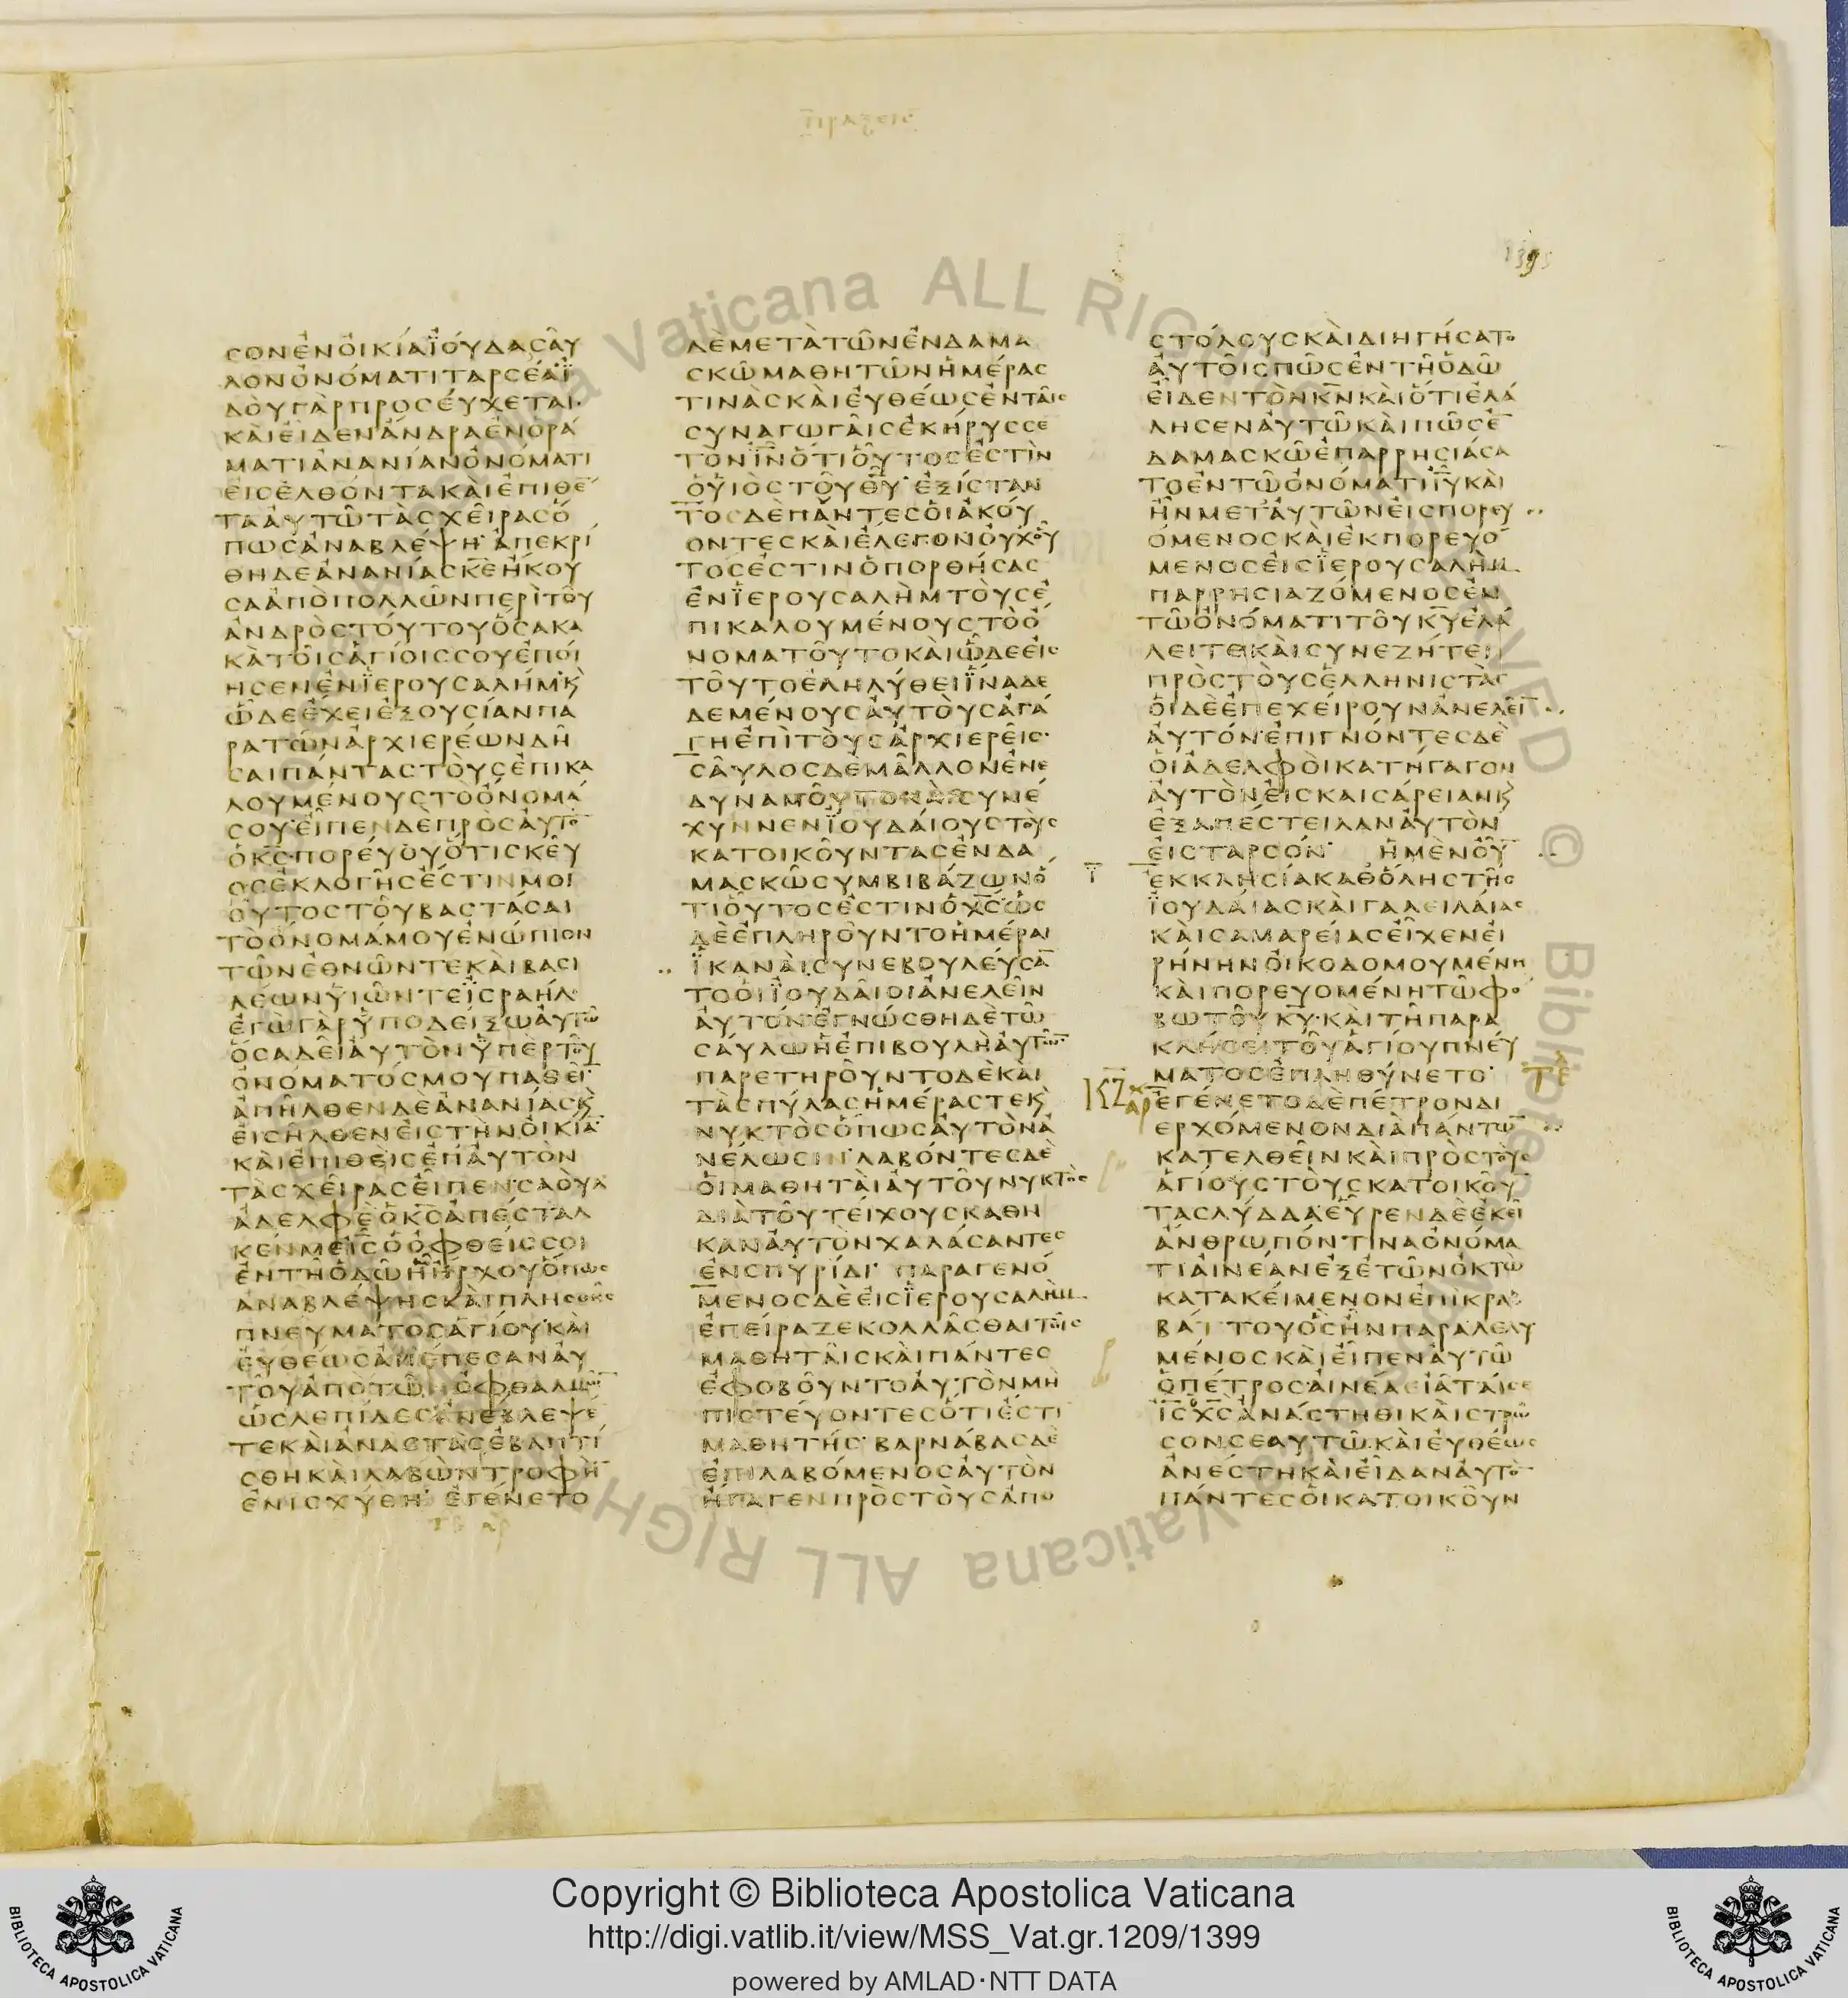 πραξεις
1395
ϹΟΝΕΝΟΙΚΙΑΪΟΥΔΑϹΑΥ
ΛΟΝΟΝΟΜΑΤΙΤΑΡϹΕΑ·Ϊ
ΔΟΥΓΑΡΠΡΟϹΕΥΧΕΤΑΙ·
ΚΑΙΕΙΔΕΝΑΝΔΡΑΕΝΟΡΑ
ΜΑΤΙΑΝΑΝΙΑΝΟΝΟΜΑΤΙ
ΕΙϹΕΛΘΟΝΤΑΚΑΙΕΠΙΘΕ̅
ΤΑΑΥΤΩΤΑϹΧΕΙΡΑϹΟ
ΠΩϹΑΝΑΒΛΕΨΗ·ΑΠΕΚΡΙ
ΘΗΔΕΑΝΑΝΙΑϹΚ̅Ε̅ΗΚΟΥ
ϹΑΑΠΟΠΟΛΛΩΝΠΕΡΙΤΟΥ
ΑΝΔΡΟϹΤΟΥΤΟΥΟϹΑΚΑ
ΚΑΤΟΙϹΑΓΙΟΙϹϹΟΥΕΠΟΙ
ΗϹΕΝΕΝΪΕΡΟΥϹΑΛΗΜ·Κ
ΩΔΕΕΧΕΙΕΞΟΥϹΙΑΝΠΑ
ΡΑΤΩΝΑΡΧΙΕΡΕΩΝΔΗ
ϹΑΙΠΑΝΤΑϹΤΟΥϹΕΠΙΚΑ
ΛΟΥΜΕΝΟΥϹΤΟΟΝΟΜΑ
ϹΟΥ·ΕΙΠΕΝΔΕΠΡΟϹΑΥΤΟ̅
ΟΚ̅Ϲ̅·ΠΟΡΕΥΟΥΟΤΙϹΚΕΥ
ΟϹΕΚΛΟΓΗϹΕϹΤΙΝΜΟΙ
ΟΥΤΟϹΤΟΥΒΑϹΤΑϹΑΙ
ΤΟΟΝΟΜΑΜΟΥΕΝΩΠΙΟΝ
ΤΩΝΕΘΝΩΝΤΕΚΑΙΒΑϹΙ
ΛΕΩΝΫΙΩΝΤΕΪϹΡΑΗΛ·
ΕΓΩΓΑΡΫΠΟΔΕΙΞΩΑΥΤΩ
ΟϹΑΔΕΙΑΥΤΟΝΫΠΕΡΤΟΥ
ΟΝΟΜΑΤΟϹΜΟΥΠΑΘΕΙ̅·
ΑΠΗΛΘΕΝΔΕΑΝΑΝΙΑϹΚ
ΕΙϹΗΛΘΕΝΕΙϹΤΗΝΟΙΚΙΑ̅·
ΚΑΙΕΠΙΘΕΙϹΕΠΑΥΤΟΝ
ΤΑϹΧΕΙΡΑϹΕΙΠΕΝ·ϹΑΟΥΛ
ΑΔΕΛΦΕΟΚ̅Ϲ̅ΑΠΕϹΤΑΛ
ΚΕΝΜΕΙ̅Ϲ̅ΟΟΦΘΕΙϹϹΟΙ
ΕΝΤΗΟΔΩΗΗΡΧΟΥΟΠΩϹ
ΑΝΑΒΛΕΨΗϹΚΑΙΠΛΗϹΘΗϹ
ΠΝΕΥΜΑΤΟϹΑΓΙΟΥ·ΚΑΙ
ΕΥΘΕΩϹΑΠΕΠΕϹΑΝΑΥ
ΤΟΥΑΠΟΤΩΝΟΦΘΑΛΜΩ̅
ΩϹΛΕΠΙΔΕϹΑΝΕΒΛΕΨΕ
ΤΕΚΑΙΑΝΑϹΤΑϹΕΒΑΠΤΙ
ϹΘΗΚΑΙΛΑΒΩΝΤΡΟΦΗ̅
ΕΝΙϹΧΥΘΗ· ΕΓΕΝΕΤΟ
ΔΕΜΕΤΑΤΩΝΕΝΔΑΜΑ
ϹΚΩΜΑΘΗΤΩΝΗΜΕΡΑϹ
ΤΙΝΑϹΚΑΙΕΥΘΕΩϹΕΝΤΑΙϹ
ϹΥΝΑΓΩΓΑΙϹΕΚΗΡΥϹϹΕ
ΤΟΝΙ̅Ν̅ΟΤΙΟΥΤΟϹΕϹΤΙΝ
ΟΥΙΟϹΤΟΥΘ̅Υ̅·ΕΞΙϹΤΑΝ
ΤΟϹΔΕΠΑΝΤΕϹΟΙΑΚΟΥ
ΟΝΤΕϹΚΑΙΕΛΕΓΟΝΟΥΧΟΥ
ΤΟϹΕϹΤΙΝΟΠΟΡΘΗϹΑϹ
ΕΝΪΕΡΟΥϹΑΛΗΜΤΟΥϹΕ
ΠΙΚΑΛΟΥΜΕΝΟΥϹΤΟΟ
ΝΟΜΑΤΟΥΤΟΚΑΙΩΔΕΕΙϹ
ΤΟΥΤΟΕΛΗΛΥΘΕΙΪΝΑΔΕ
ΔΕΜΕΝΟΥϹΑΥΤΟΥϹΑΓΑ
ΓΗΕΠΙΤΟΥϹΑΡΧΙΕΡΕΙϹ·
ϹΑΥΛΟϹΔΕΜΑΛΛΟΝΕΝΕ
ΔΥΝΑΜΟΥΤΟΚΑΙϹΥΝΕ
ΧΥΝΝΕΝΪΟΥΔΑΙΟΥϹΤΟΥϹ
ΚΑΤΟΙΚΟΥΝΤΑϹΕΝΔΑ
ΜΑϹΚΩϹΥΜΒΙΒΑΖΩΝΟ
ΤΙΟΥΤΟϹΕϹΤΙΝΟΧ̅Ϲ̅·ΩϹ
ΔΕΕΠΛΗΡΟΥΝΤΟΗΜΕΡΑΙ
ΪΚΑΝΑΙϹΥΝΕΒΟΥΛΕΥϹΑ̅
ΤΟΟΙΪΟΥΔΑΙΟΙΑΝΕΛΕΙΝ
ΑΥΤΟΝ·ΕΓΝΩϹΘΗΔΕΤΩ
ϹΑΥΛΩΗΕΠΙΒΟΥΛΗΑΥΤΩ̅·
ΠΑΡΕΤΗΡΟΥΝΤΟΔΕΚΑΙ
ΤΑϹΠΥΛΑϹΗΜΕΡΑϹΤΕΚ
ΝΥΚΤΟϹΟΠΩϹΑΥΤΟΝΑ
ΝΕΛΩϹΙΝ·ΛΑΒΟΝΤΕϹΔΕ
ΟΙΜΑΘΗΤΑΙΑΥΤΟΥΝΥΚΤΟϹ
ΔΙΑΤΟΥΤΕΙΧΟΥϹΚΑΘΗ
ΚΑΝΑΥΤΟΝΧΑΛΑϹΑΝΤΕϹ
ΕΝϹΠΥΡΙΔΙ· ΠΑΡΑΓΕΝΟ
ΜΕΝΟϹΔΕΕΙϹΪΕΡΟΥϹΑΛΗΜ
ΕΠΕΙΡΑΖΕΚΟΛΛΑϹΘΑΙΤΟΙϹ
ΜΑΘΗΤΑΙϹΚΑΙΠΑΝΤΕϹ
ΕΦΟΒΟΥΝΤΟΑΥΤΟΝΜΗ
ΠΙϹΤΕΥΟΝΤΕϹΟΤΙΕϹΤΙ
ΜΑΘΗΤΗϹ·ΒΑΡΝΑΒΑϹΔΕ
ΕΠΙΛΑΒΟΜΕΝΟϹΑΥΤΟΝ
ΗΓΑΓΕΝΠΡΟϹΤΟΥϹΑΠΟ
ϹΤΟΛΟΥϹΚΑΙΔΙΗΓΗϹΑΤΟ
ΑΥΤΟΙϹΠΩϹΕΝΤΗΟΔΩ
ΕΙΔΕΝΤΟΝΚ̅Ν̅ΚΑΙΟΤΙΕΛΑ
ΛΗϹΕΝΑΥΤΩΚΑΙΠΩϹΕ̅
ΔΑΜΑϹΚΩΕΠΑΡΡΗϹΙΑϹΑ
ΤΟΕΝΤΩΟΝΟΜΑΤΙΙ̅Υ̅ΚΑΙ
ΗΝΜΕΤΑΥΤΩΝΕΙϹΠΟΡΕΥ
ΟΜΕΝΟϹΚΑΙΕΚΠΟΡΕΥΟ
ΜΕΝΟϹΕΙϹΪΕΡΟΥϹΑΛΗΜ
ΠΑΡΡΗϹΙΑΖΟΜΕΝΟϹΕΝ
ΤΩΟΝΟΜΑΤΙΤΟΥΚ̅Υ̅ΕΛΑ
ΛΕΙΤΕΚΑΙϹΥΝΕΖΗΤΕΙ
ΠΡΟϹΤΟΥϹΕΛΛΗΝΙϹΤΑϹ
ΟΙΔΕΕΠΕΧΕΙΡΟΥΝΑΝΕΛΕΙ̅
ΑΥΤΟΝ·ΕΠΙΓΝΟΝΤΕϹΔΕ
ΟΙΑΔΕΛΦΟΙΚΑΤΗΓΑΓΟΝ
ΑΥΤΟΝΕΙϹΚΑΙϹΑΡΕΙΑΝΚ
ΕΞΑΠΕϹΤΕΙΛΑΝΑΥΤΟΝ
ΕΙϹΤΑΡϹΟΝ· ΗΜΕΝΟΥ̅
ΕΚΚΛΗϹΙΑΚΑΘΟΛΗϹΤΗϹ
ΪΟΥΔΑΙΑϹΚΑΙΓΑΛΕΙΛΑΙΑϹ
ΚΑΙϹΑΜΑΡΕΙΑϹΕΙΧΕΝΕΙ
ΡΗΝΗΝΟΙΚΟΔΟΜΟΥΜΕΝΗ
ΚΑΙΠΟΡΕΥΟΜΕΝΗΤΩΦΟ
ΒΩΤΟΥΚ̅Υ̅·ΚΑΙΤΗΠΑΡΑ
ΚΛΗϹΕΙΤΟΥΑΓΙΟΥΠΝΕΥ
ΜΑΤΟϹΕΠΛΗΘΥΝΕΤΟ· ΤΕ
ΚΖ ΑΡ ΕΓΕΝΕΤΟΔΕΠΕΤΡΟΝΔΙ
ΕΡΧΟΜΕΝΟΝΔΙΑΠΑΝΤΩ̅
ΚΑΤΕΛΘΕΙΝΚΑΙΠΡΟϹΤΟΥϹ
ΑΓΙΟΥϹΤΟΥϹΚΑΤΟΙΚΟΥ̅
ΤΑϹΛΥΔΔΑ·ΕΥΡΕΝΔΕΕΚΕΙ
ΑΝΘΡΩΠΟΝΤΙΝΑΟΝΟΜΑ
ΤΙΑΙΝΕΑΝΕΞΕΤΩΝΟΚΤΩ
ΚΑΤΑΚΕΙΜΕΝΟΝΕΠΙΚΡΑ
ΒΑΤΤΟΥΟϹΗΝΠΑΡΑΛΕΛΥ
ΜΕΝΟϹΚΑΙΕΙΠΕΝΑΥΤΩ
ΟΠΕΤΡΟϹ·ΑΙΝΕΑΕΙΑΤΑΙϹΕ
Ι̅Ϲ̅Χ̅Ϲ̅ΑΝΑϹΤΗΘΙΚΑΙϹΤΡΩ
ϹΟΝϹΕΑΥΤΩ·ΚΑΙΕΥΘΕΩϹ
ΑΝΕϹΤΗΚΑΙΕΙΔΑΝΑΥΤΟ̅
ΠΑΝΤΕϹΟΙΚΑΤΟΙΚΟΥΝ
Copyright © Biblioteca Apostolica Vaticana
http://digi.vatlib.it/view/MSS_Vat.gr.1209/1399
powered by AMLAD·NTT DATA
BIBLIOTECA APOSTOLICA VATICANA
BIBLIOTECA APOSTOLICA VATICANA